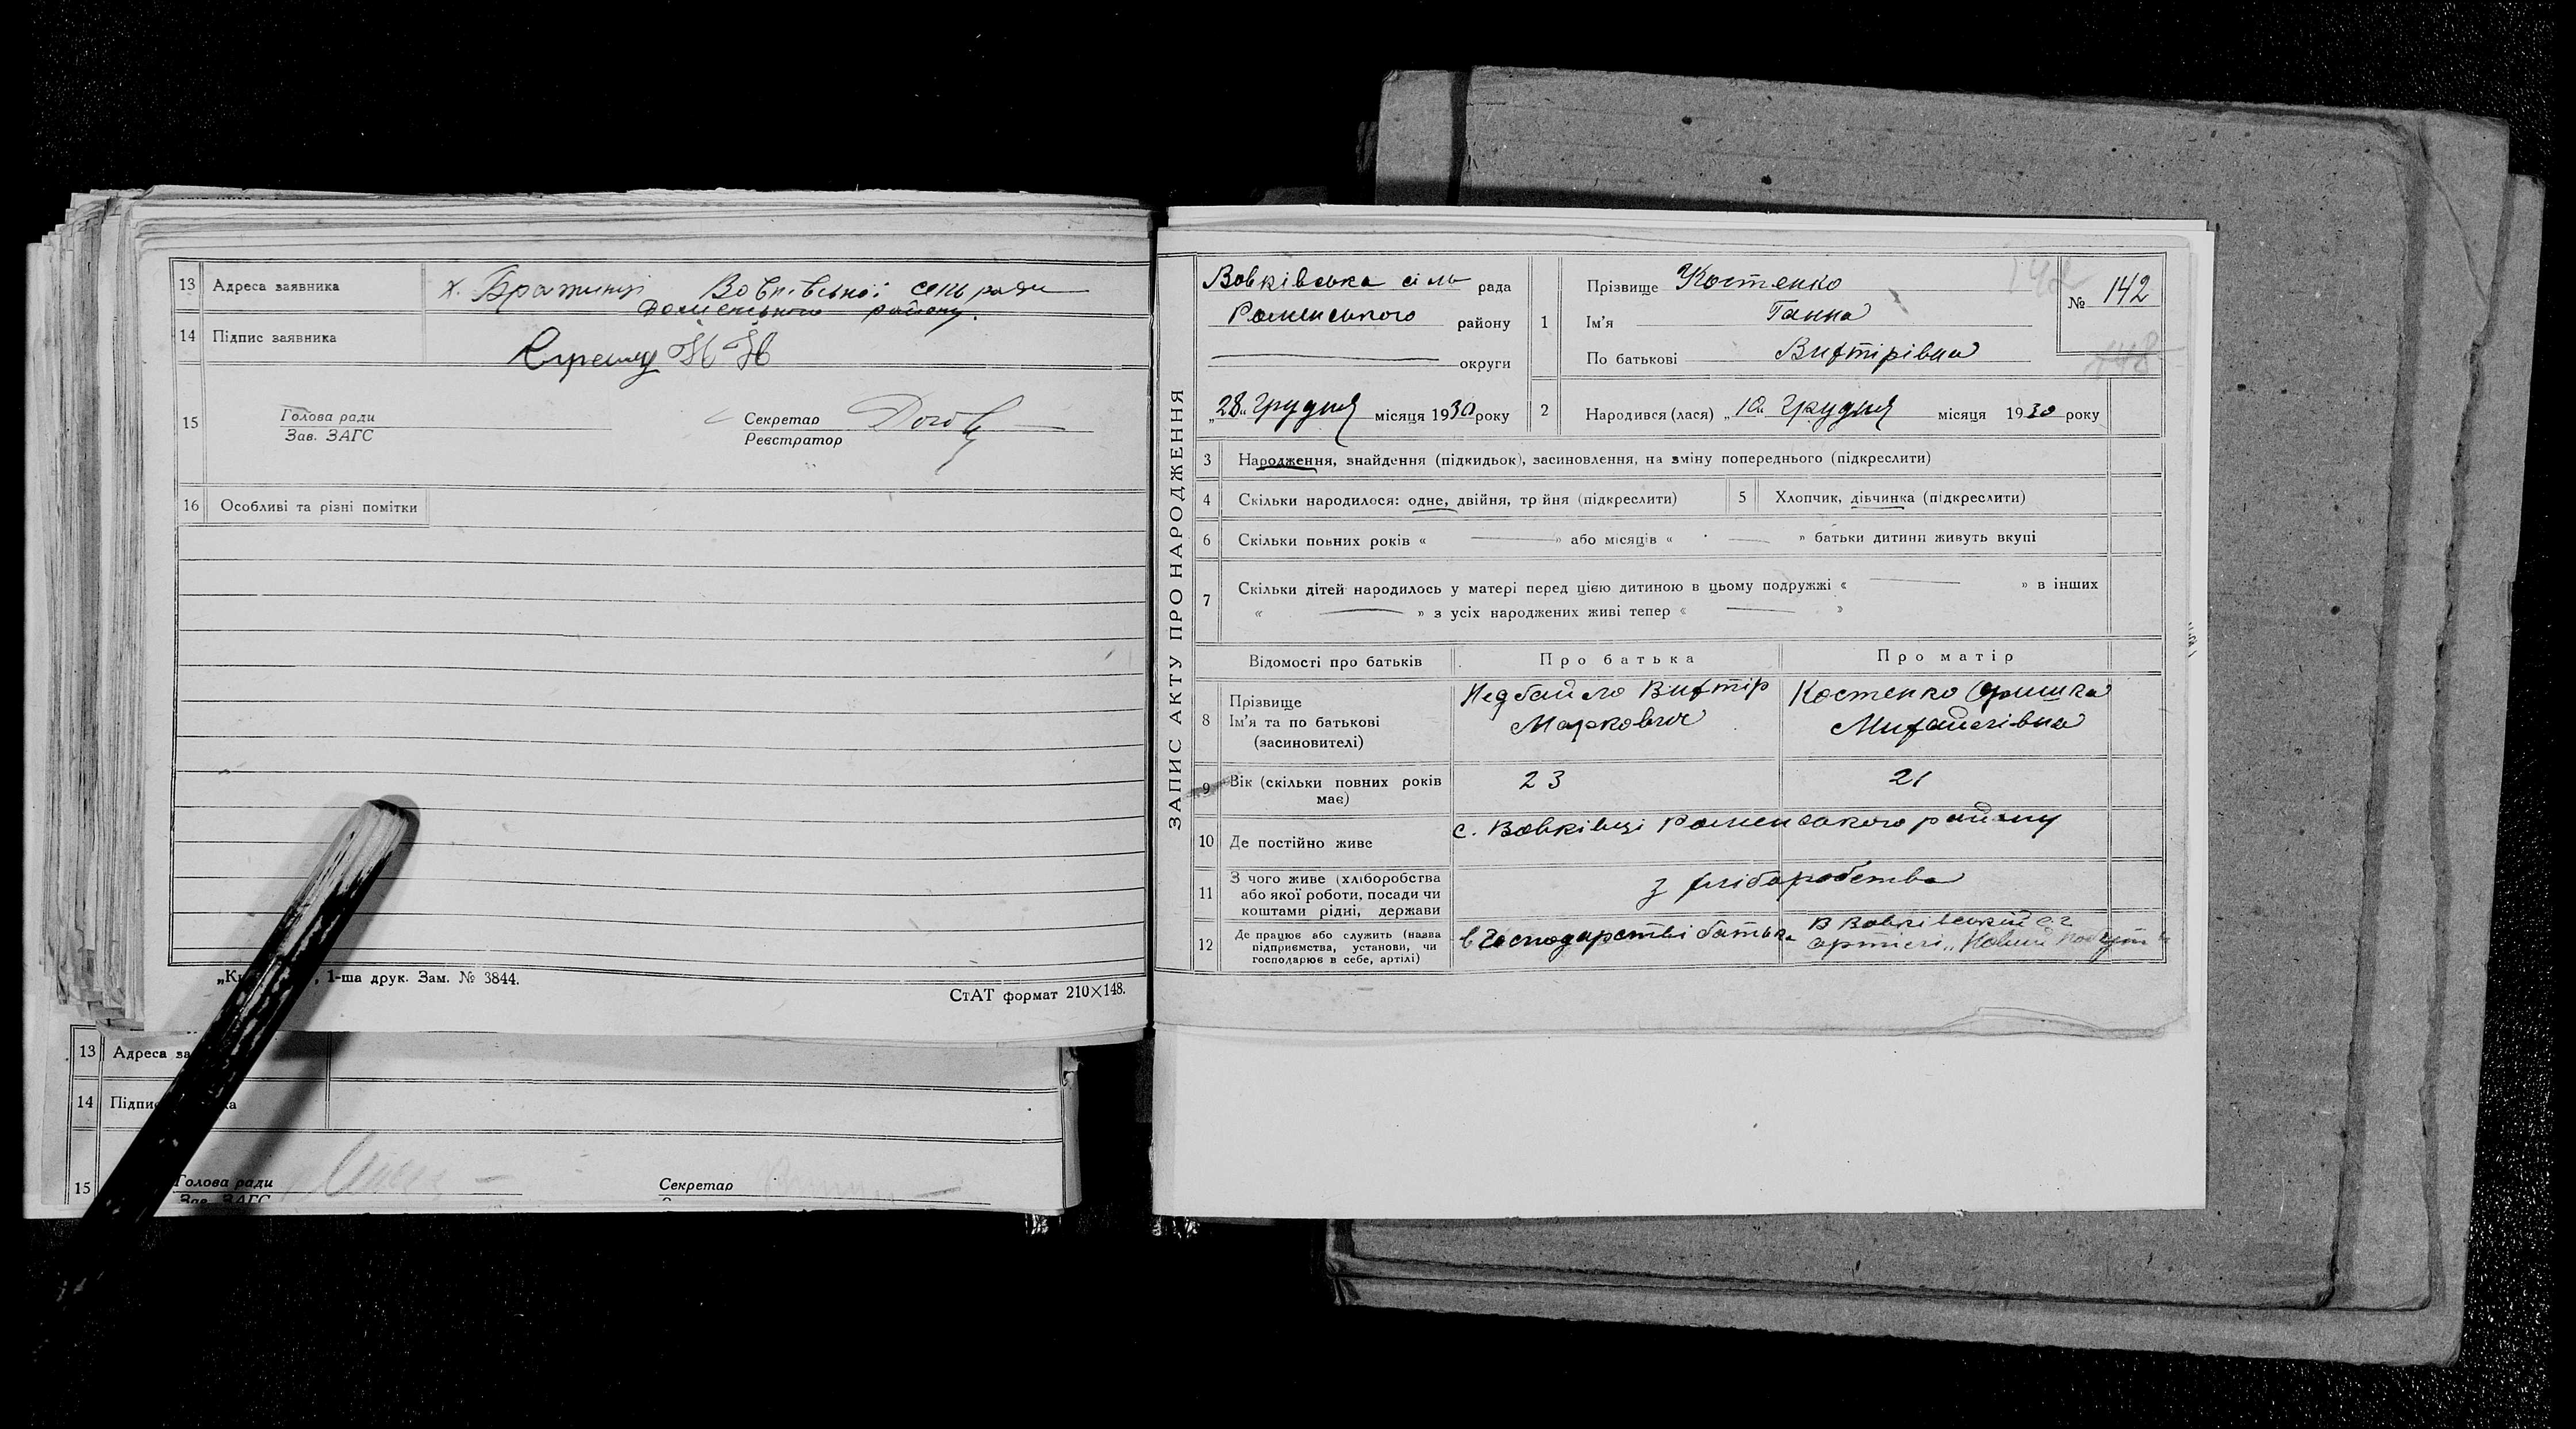 13 Адреса заявника х. Бражинці Вовківської сель ради
Роменського району.
14 Підпис заявника
15 Голова ради
Зав. ЗАГС
Секретар
Реєстратор
16 Особливі та різні помітки
1-ша друк. Зам. № 3844.
СтАТ формат 210×148.
13 Адреса за
14 Підпис
15 Голова ради
Зав. ЗАГС
Секретар
ЗАПИС АКТУ ПРО НАРОДЖЕННЯ
Вовківська сіль рада
Роменського району
округи
„28" грудня місяця 1930 року
1 Прізвище Костенко
Ім'я Ганна
По батькові Вихтірівна
№ 142
142
148
2 Народився (лася) „10" грудня місяця 1930 року
3 Народження, знайдення (підкидьок), засиновлення, на зміну попереднього (підкреслити)
4 Скільки народилося: одне, двійня, трійня (підкреслити) 5 Хлопчик, дівчинка (підкреслити)
6 Скільки повних років « — » або місяців « — » батьки дитини живуть вкупі
7 Скільки дітей народилось у матері перед цією дитиною в цьому подружжі « — » в інших
« — » з усіх народжених живі тепер « — »
Відомості про батьків Про батька Про матір
8 Прізвище
Ім'я та по батькові
(засновителі)
Недбайло Вихтір
Маркович
Костенко Оришка
Михайлівна
9 Вік (скільки повних років
має)
23 21
10 Де постійно живе с. Вовківці Роменського району
11 З чого живе (хліборобства
або якої роботи, посади чи
коштами рідні, держави
з хліборобства
12 Де працює або служить (назва
підприємства, установи, чи
господарює в себе, артілі)
в господарстві батька
В Вовківський с.г.
артілі „Новий побут"